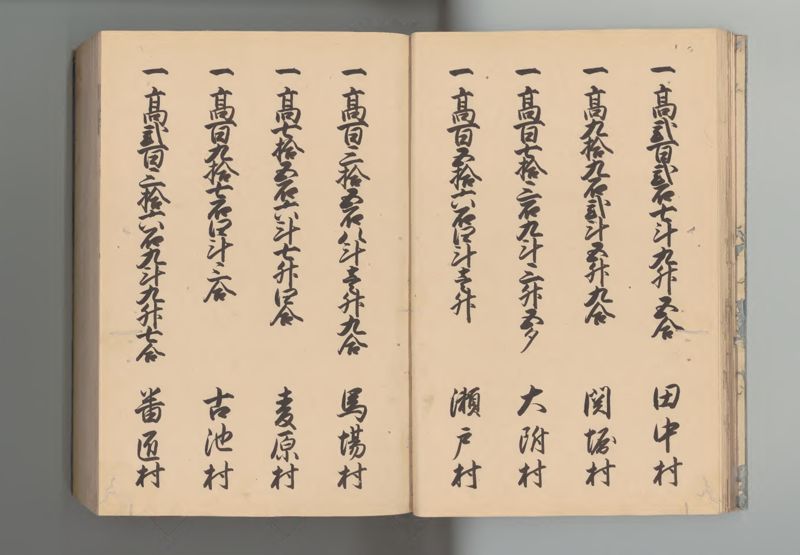 一 髙弐百弐石七斗九升五合 田中村
一 髙九拾九石弐斗五升九合 関堀村
一 髙百七拾三石九斗三升五夕 大附村
一 髙百五拾六石四斗壱升 瀬戸村
一 髙百三拾五石八斗壱升九合 馬場村
一 髙七拾五石六斗七升四合 麦原村
一 髙百九拾七石四斗三合 古池村
一 髙弐百三拾六石九斗九升七合 番匠村